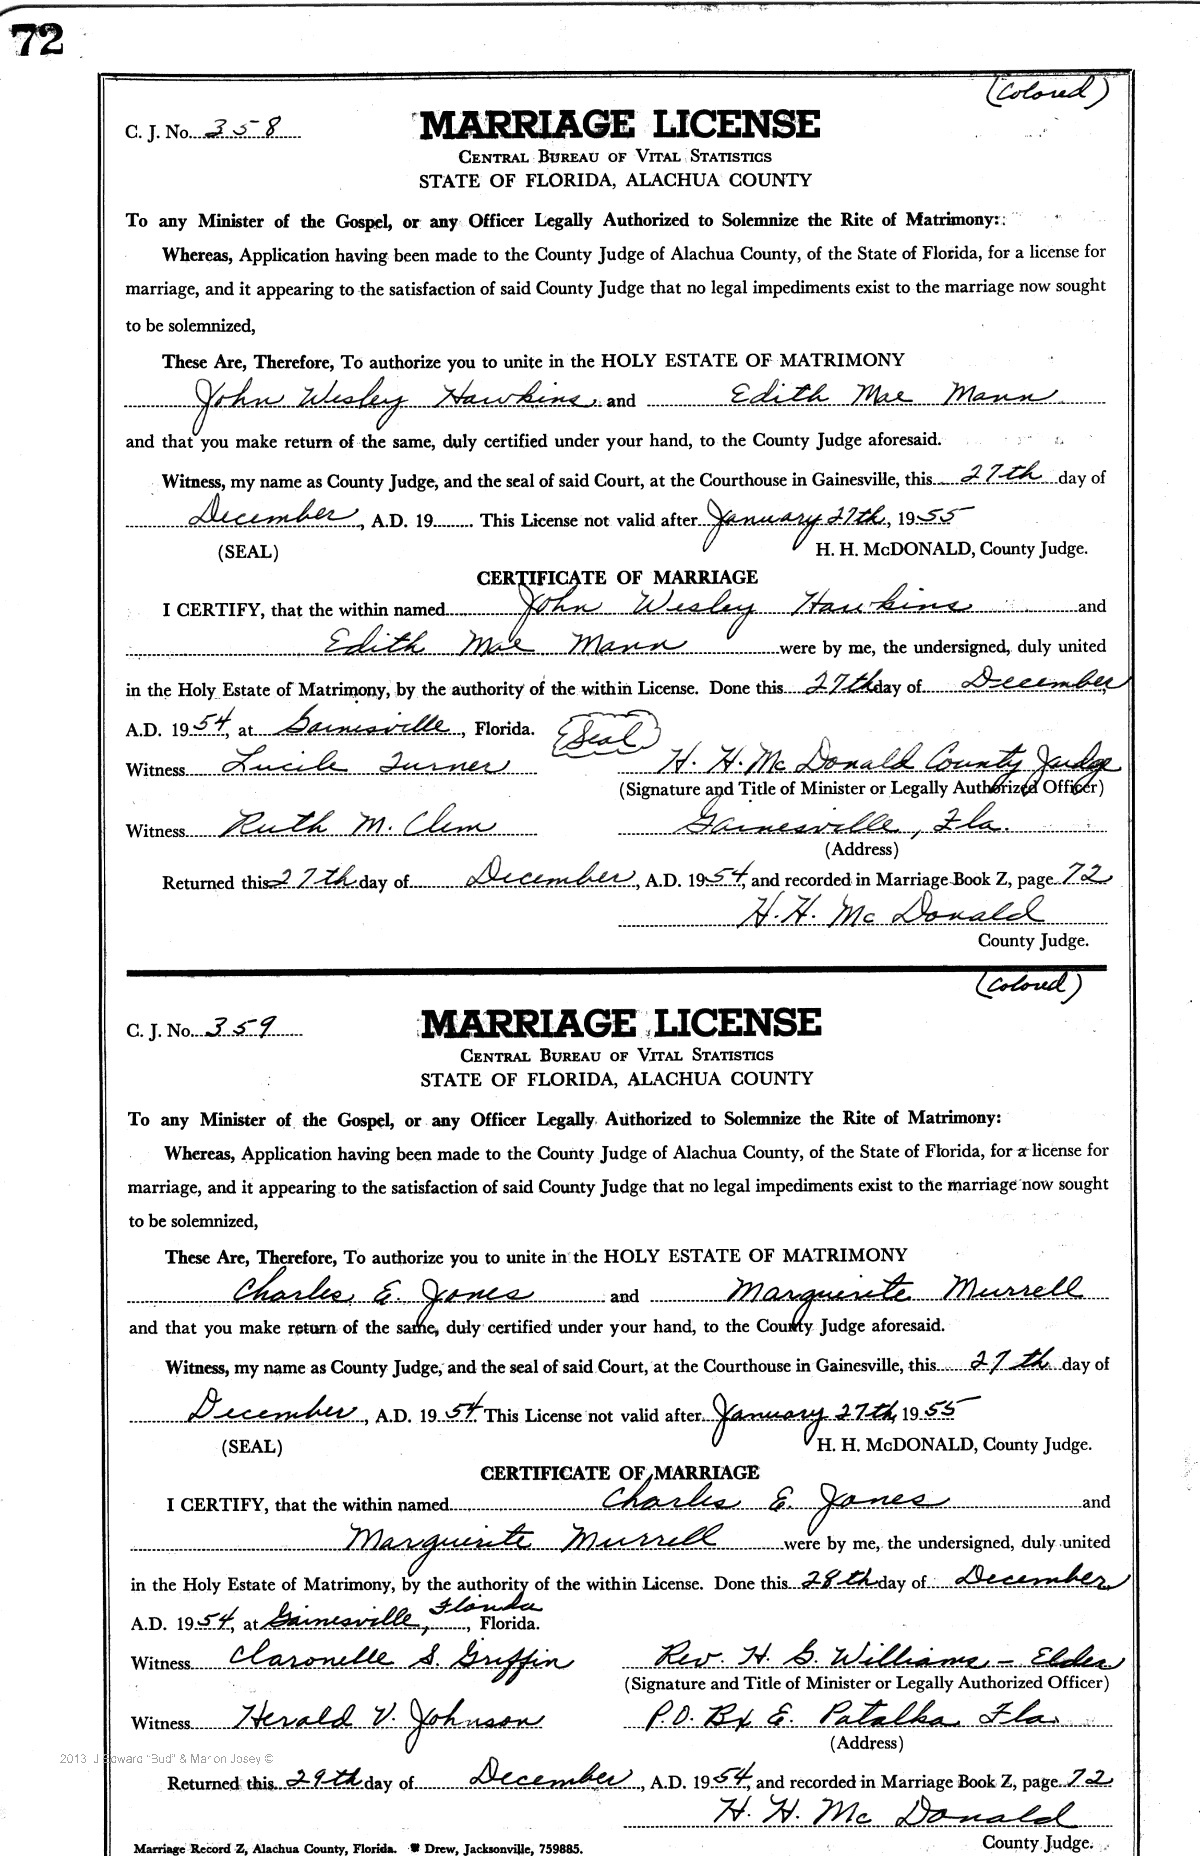 72
(Colored)
C. J. No. 358 MARRIAGE LICENSE
CENTRAL BUREAU OF VITAL STATISTICS
STATE OF FLORIDA, ALACHUA COUNTY
To any Minister of the Gospel, or any Officer Legally Authorized to Solemnize the Rite of Matrimony:
Whereas, Application having been made to the County Judge of Alachua County, of the State of Florida, for a license for
marriage, and it appearing to the satisfaction of said County Judge that no legal impediments exist to the marriage now sought
to be solemnized,
These Are, Therefore, To authorize you to unite in the HOLY ESTATE OF MATRIMONY
John Wesley Hawkins and Edith Mae Mann
and that you make return of the same, duly certified under your hand, to the County Judge aforesaid.
Witness, my name as County Judge, and the seal of said Court, at the Courthouse in Gainesville, this 27th day of
December, A.D. 19 This License not valid after January 27th, 1955
(SEAL) H. H. McDONALD, County Judge.
CERTIFICATE OF MARRIAGE
I CERTIFY, that the within named John Wesley Hawkins and
Edith Mae Mann were by me, the undersigned, duly united
in the Holy Estate of Matrimony, by the authority of the within License. Done this 27th day of December,
A.D. 1954, at Gainesville, Florida. Seal
Witness Lucile Turner H. H. McDonald County Judge
(Signature and Title of Minister or Legally Authorized Officer)
Witness Ruth M. Clem Gainesville, Fla.
(Address)
Returned this 27th day of December, A.D. 1954, and recorded in Marriage Book Z, page 72
H. H. McDonald
County Judge.
(Colored)
C. J. No. 359 MARRIAGE LICENSE
CENTRAL BUREAU OF VITAL STATISTICS
STATE OF FLORIDA, ALACHUA COUNTY
To any Minister of the Gospel, or any Officer Legally Authorized to Solemnize the Rite of Matrimony:
Whereas, Application having been made to the County Judge of Alachua County, of the State of Florida, for a license for
marriage, and it appearing to the satisfaction of said County Judge that no legal impediments exist to the marriage now sought
to be solemnized,
These Are, Therefore, To authorize you to unite in the HOLY ESTATE OF MATRIMONY
Charles E. Jones and Marguerite Murrell
and that you make return of the same, duly certified under your hand, to the County Judge aforesaid.
Witness, my name as County Judge, and the seal of said Court, at the Courthouse in Gainesville, this 27th day of
December, A.D. 1954 This License not valid after January 27th, 1955
(SEAL) H. H. McDONALD, County Judge.
CERTIFICATE OF MARRIAGE
I CERTIFY, that the within named Charles E. Jones and
Marguerite Murrell were by me, the undersigned, duly united
in the Holy Estate of Matrimony, by the authority of the within License. Done this 28th day of December,
A.D. 1954, at Gainesville, Florida, Florida.
Witness Claronelle S. Griffin Rev. H. G. Williams - Elder
(Signature and Title of Minister or Legally Authorized Officer)
Witness Herald V. Johnson P.O. Bx E. Patalka, Fla.
(Address)
2013 J Edward "Bud" & Marion Josey ©
Returned this 29th day of December, A.D. 1954, and recorded in Marriage Book Z, page 72
H. H. McDonald
County Judge.
Marriage Record Z, Alachua County, Florida. Drew, Jacksonville, 759885.